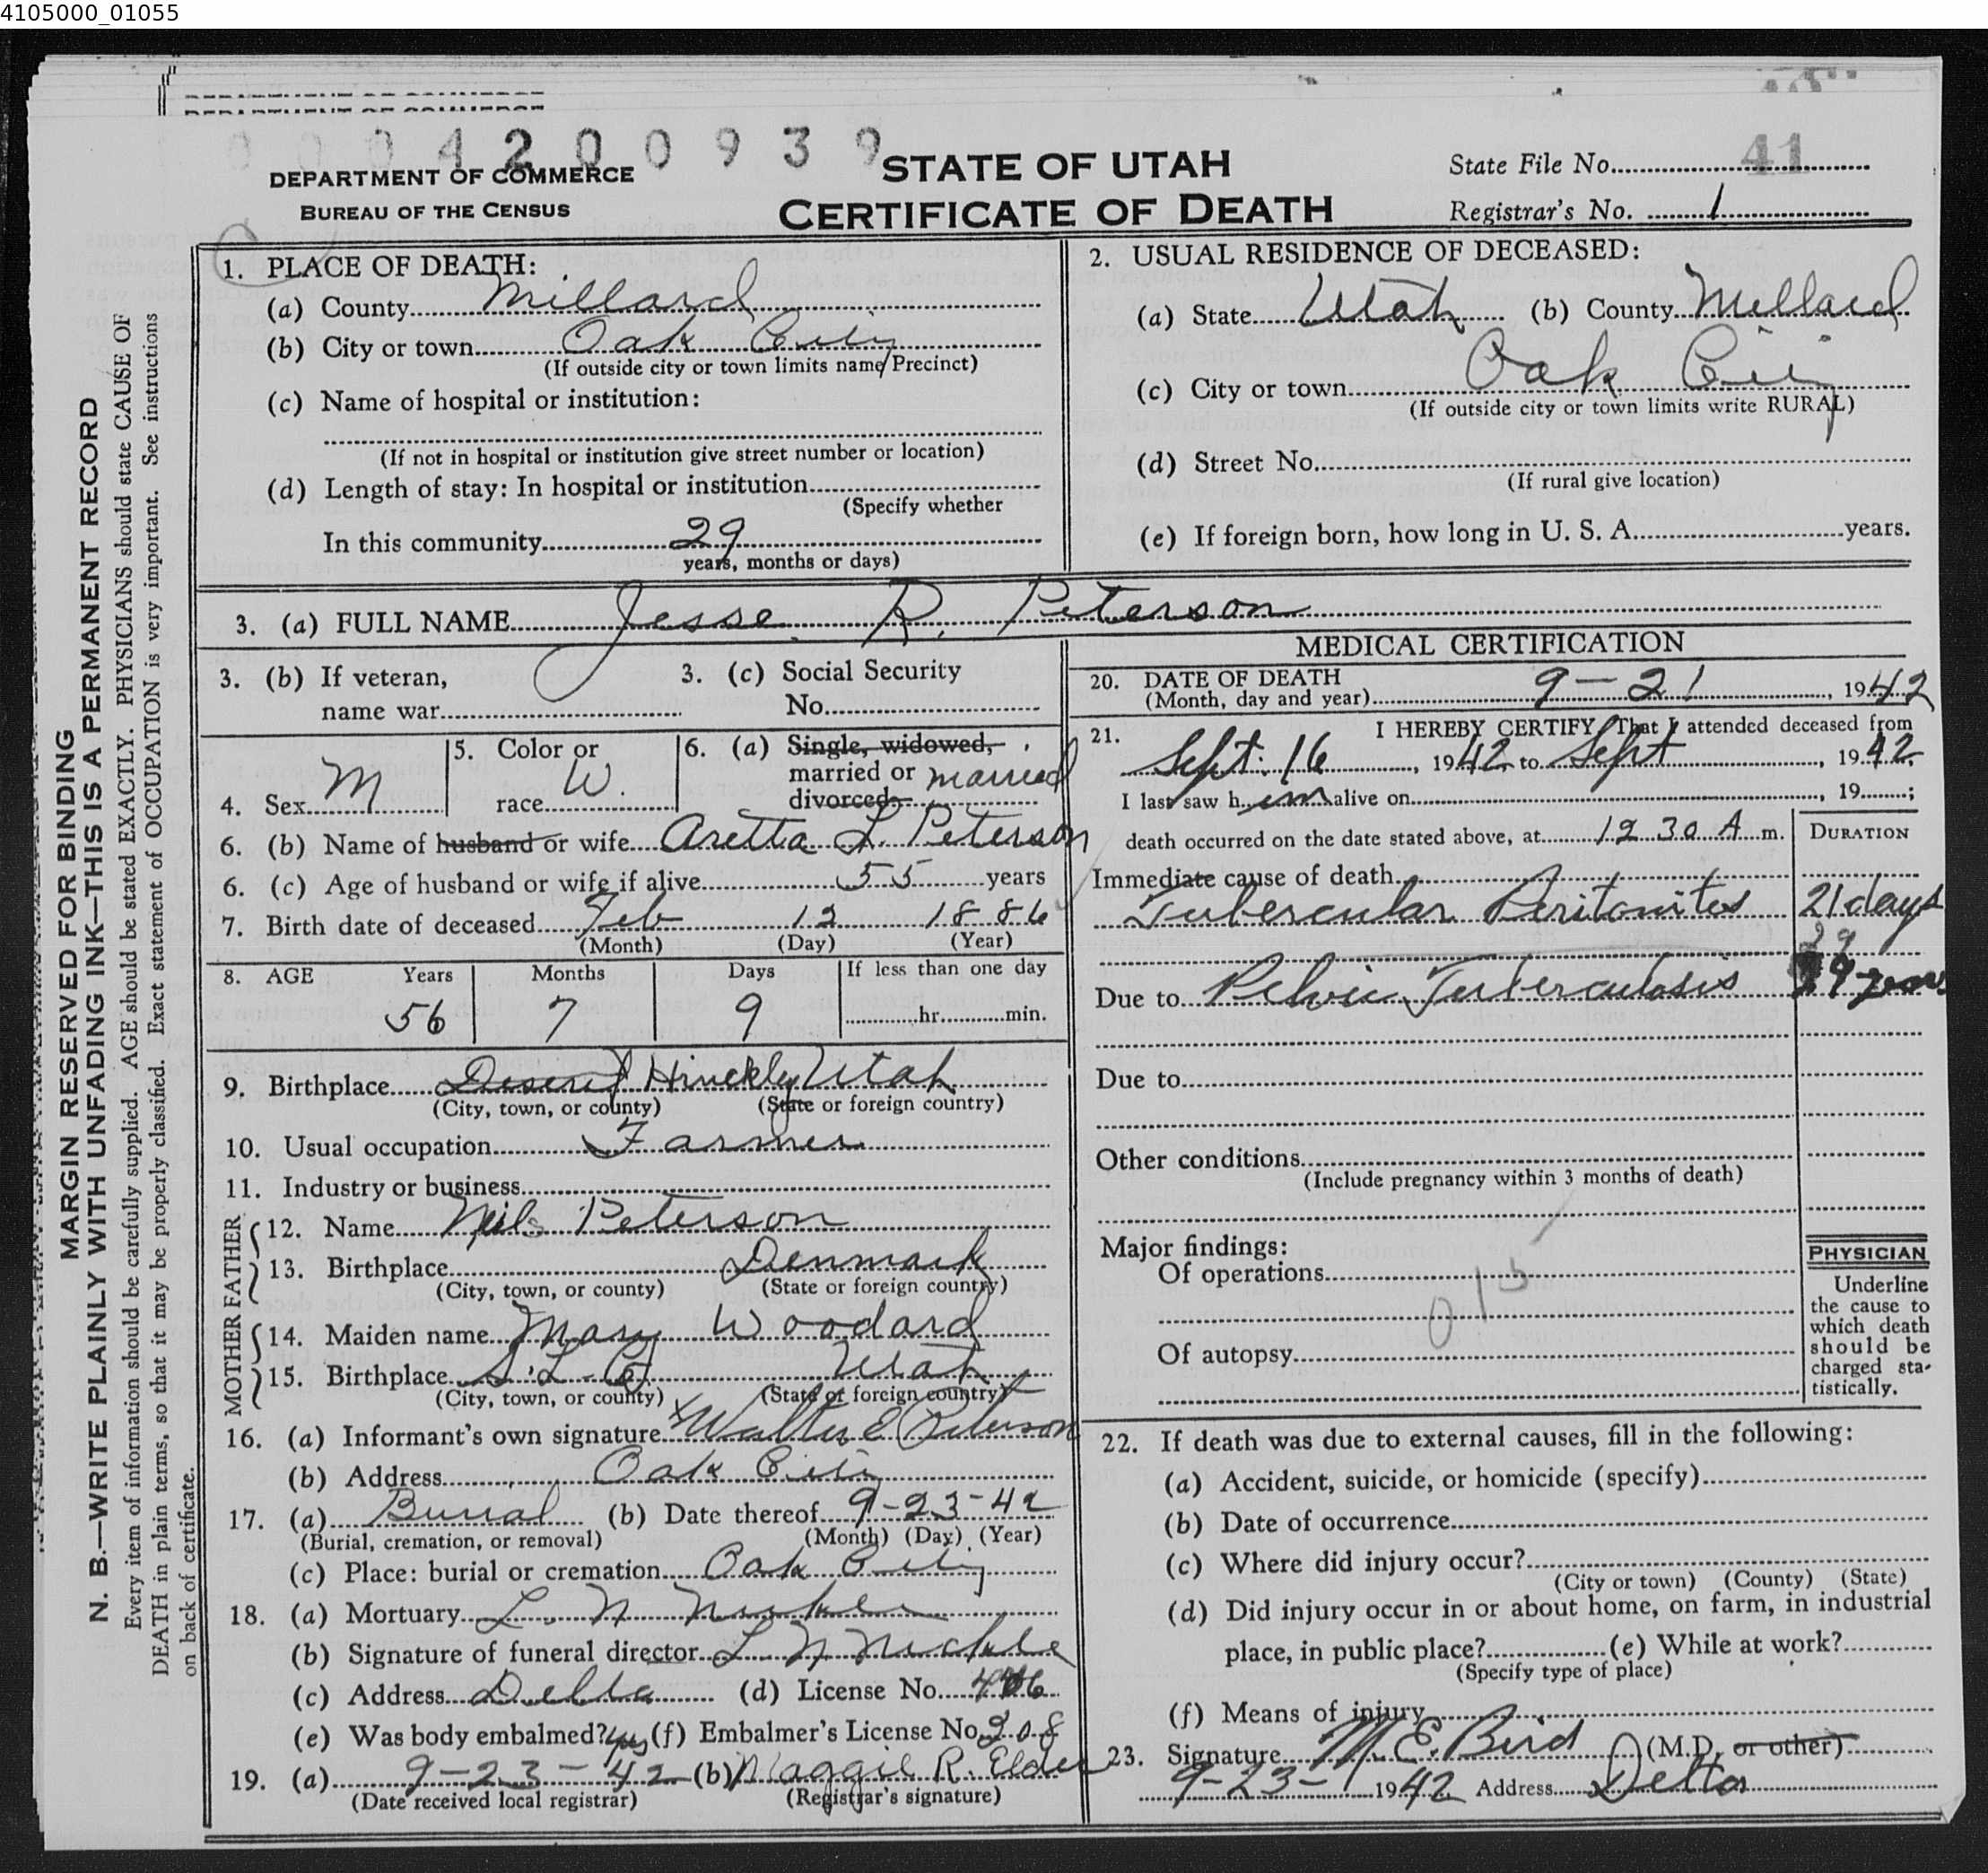 4105000_01055
DEPARTMENT OF COMMERCE
0 0 0 4 2 0 0 9 3 9
DEPARTMENT OF COMMERCE
BUREAU OF THE CENSUS
STATE OF UTAH
CERTIFICATE OF DEATH
State File No. 41
Registrar's No. 1
1. PLACE OF DEATH:
(a) County Millard
(b) City or town Oak City
(If outside city or town limits name Precinct)
(c) Name of hospital or institution:
(If not in hospital or institution give street number or location)
(d) Length of stay: In hospital or institution
(Specify whether
In this community 29
years, months or days)
2. USUAL RESIDENCE OF DECEASED:
(a) State Utah (b) County Millard
(c) City or town Oak City
(If outside city or town limits write RURAL)
(d) Street No.
(If rural give location)
(e) If foreign born, how long in U. S. A. years.
3. (a) FULL NAME Jesse R. Peterson
3. (b) If veteran, name war
3. (c) Social Security No.
4. Sex M
5. Color or race W.
6. (a) Single, widowed, married or divorced married
6. (b) Name of husband or wife Aretta L. Peterson
6. (c) Age of husband or wife if alive 55 years
7. Birth date of deceased Feb 12 1886
(Month) (Day) (Year)
8. AGE Years Months Days If less than one day
56 7 9 hr. min.
9. Birthplace Deseret Hinckley Utah
(City, town, or county) (State or foreign country)
10. Usual occupation Farmer
11. Industry or business
FATHER
12. Name Neils Peterson
13. Birthplace Denmark
(City, town, or county) (State or foreign country)
MOTHER
14. Maiden name Mary Woodard
15. Birthplace S. L. C. Utah
(City, town, or county) (State or foreign country)
16. (a) Informant's own signature x Walter E Peterson
(b) Address Oak City
17. (a) Burial (b) Date thereof 9-23-42
(Burial, cremation, or removal) (Month) (Day) (Year)
(c) Place: burial or cremation Oak City
18. (a) Mortuary L. N
(b) Signature of funeral director L N
(c) Address Delta (d) License No.
(e) Was body embalmed? yes (f) Embalmer's License No. 208
19. (a) 9-23-42 (b) Maggie R. Elder
(Date received local registrar) (Registrar's signature)
MEDICAL CERTIFICATION
20. DATE OF DEATH
(Month, day and year) 9-21, 1942
21. I HEREBY CERTIFY, That I attended deceased from
Sept. 16, 1942, to Sept, 1942.
I last saw him alive on , 19 ;
death occurred on the date stated above, at 12 30 A m.
DURATION
Immediate cause of death
Tubercular Peritonites 21 days
29
Due to Pelvic Tuberculosis 29 years
Due to
Other conditions
(Include pregnancy within 3 months of death)
Major findings:
Of operations
Of autopsy
PHYSICIAN
Underline
the cause to
which death
should be
charged sta-
tistically.
22. If death was due to external causes, fill in the following:
(a) Accident, suicide, or homicide (specify)
(b) Date of occurrence
(c) Where did injury occur?
(City or town) (County) (State)
(d) Did injury occur in or about home, on farm, in industrial
place, in public place? (e) While at work?
(Specify type of place)
(f) Means of injury
23. Signature M. E. Bird (M.D. or other)
9-23- 1942 Address Delta
MARGIN RESERVED FOR BINDING
N. B.—WRITE PLAINLY WITH UNFADING INK—THIS IS A PERMANENT RECORD
Every item of information should be carefully supplied. AGE should be stated EXACTLY. PHYSICIANS should state CAUSE OF
DEATH in plain terms, so that it may be properly classified. Exact statement of OCCUPATION is very important. See instructions
on back of certificate.